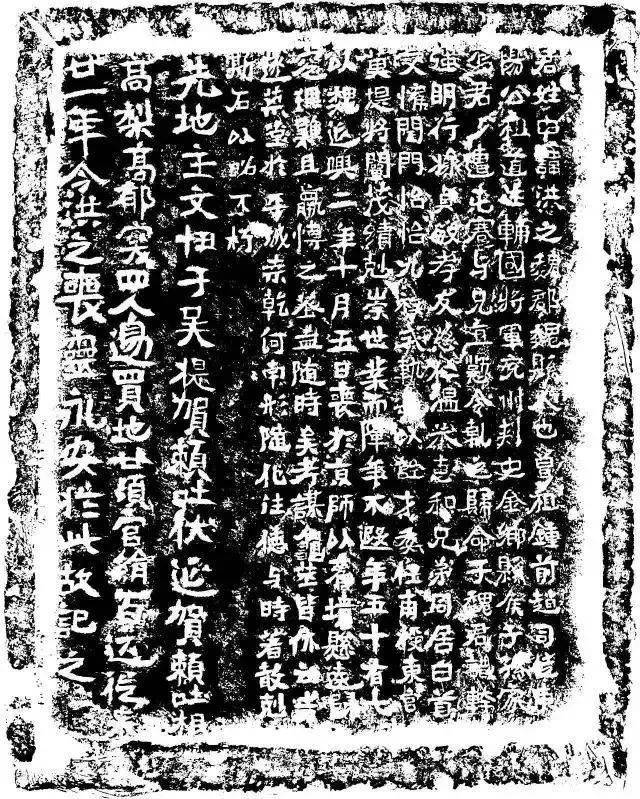 君姓申諱洪之魏郡魏縣人也曾祖鍾前趙司徒東
陽公祖道生輔國將軍兗州刺史金鄉縣侯子孫家
焉君少遭屯蹇与兄直懃令乹之歸命于魏君識幹
强明行操貞敏孝友慈仁溫恭惠和兄弟同居白首
交懽閨門怡怡九族式軌是以詮才委任甫授東宮
莫堤將闡茂績剋崇世業而降年不遐年五十有七
以魏延興二年十月五日喪於京師以舊墳懸遠歸
窆理難且嬴愽之葬盖随時矣考謀龜筮皆云吉
遂築堂於平城桑乾河南形随化往德与時著敢剋
斯石以昭不朽
先地主文忸于吴提賀賴吐伏延賀賴吐根
高梨高郁突四人邊買地廿頃官絹百匹從來
廿一年今洪之喪靈永安於此故記之